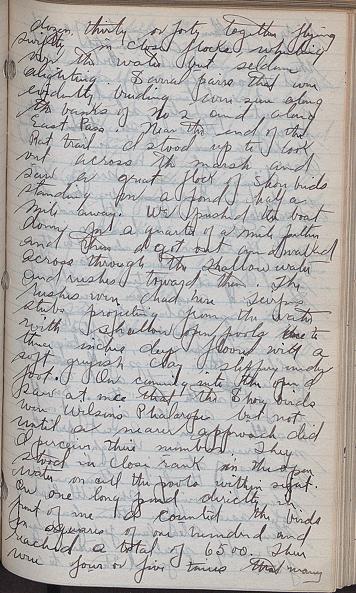 dozen, thirty or forty together flying
swiftly in close flocks whirling
over the water but seldom
alighting. Several pairs that were
evidently breeding were seen along
the banks of No 2 and along
East Pass. Near the end of the
Rat trail I stood up to look
out across the marsh and
saw a great flock of Shore birds
standing in a pond half a
mile away. We pushed the boat
down for a quarter of a mile farther
and then I got out and waded
across through the shallow water
and rushes toward them. The
rushes were dead here
stubs projecting from the water
with shallow open pools to
three inches deep floored with a
soft grayish clay slippery under
foot. On coming into the open I
saw at once that the Shore birds
were Wilsons Phalarope but not
until a nearer approach did
I perceive their number. They
stood in close rank in the open
water on all the pools within sight.
On one long pond directly in
front of me I counted the birds
in squares of one hundred and
reached a total of 6500. There
were four or five times that many